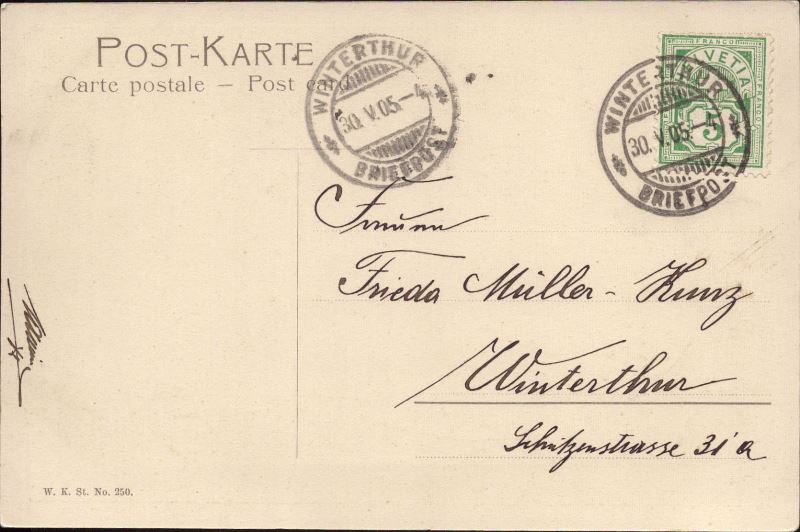 POST-KARTE
Carte postale – Post card
WINTERTHUR
30.V.05.-4
BRIEFPOST
FRANCO
HELVETIA
FRANCO
5
WINTERTHUR
30.V.05.-5
BRIEFPOST
Frieda Müller-Kunz
Winterthur
Schützenstrasse 31a
W. K. St. No. 250.